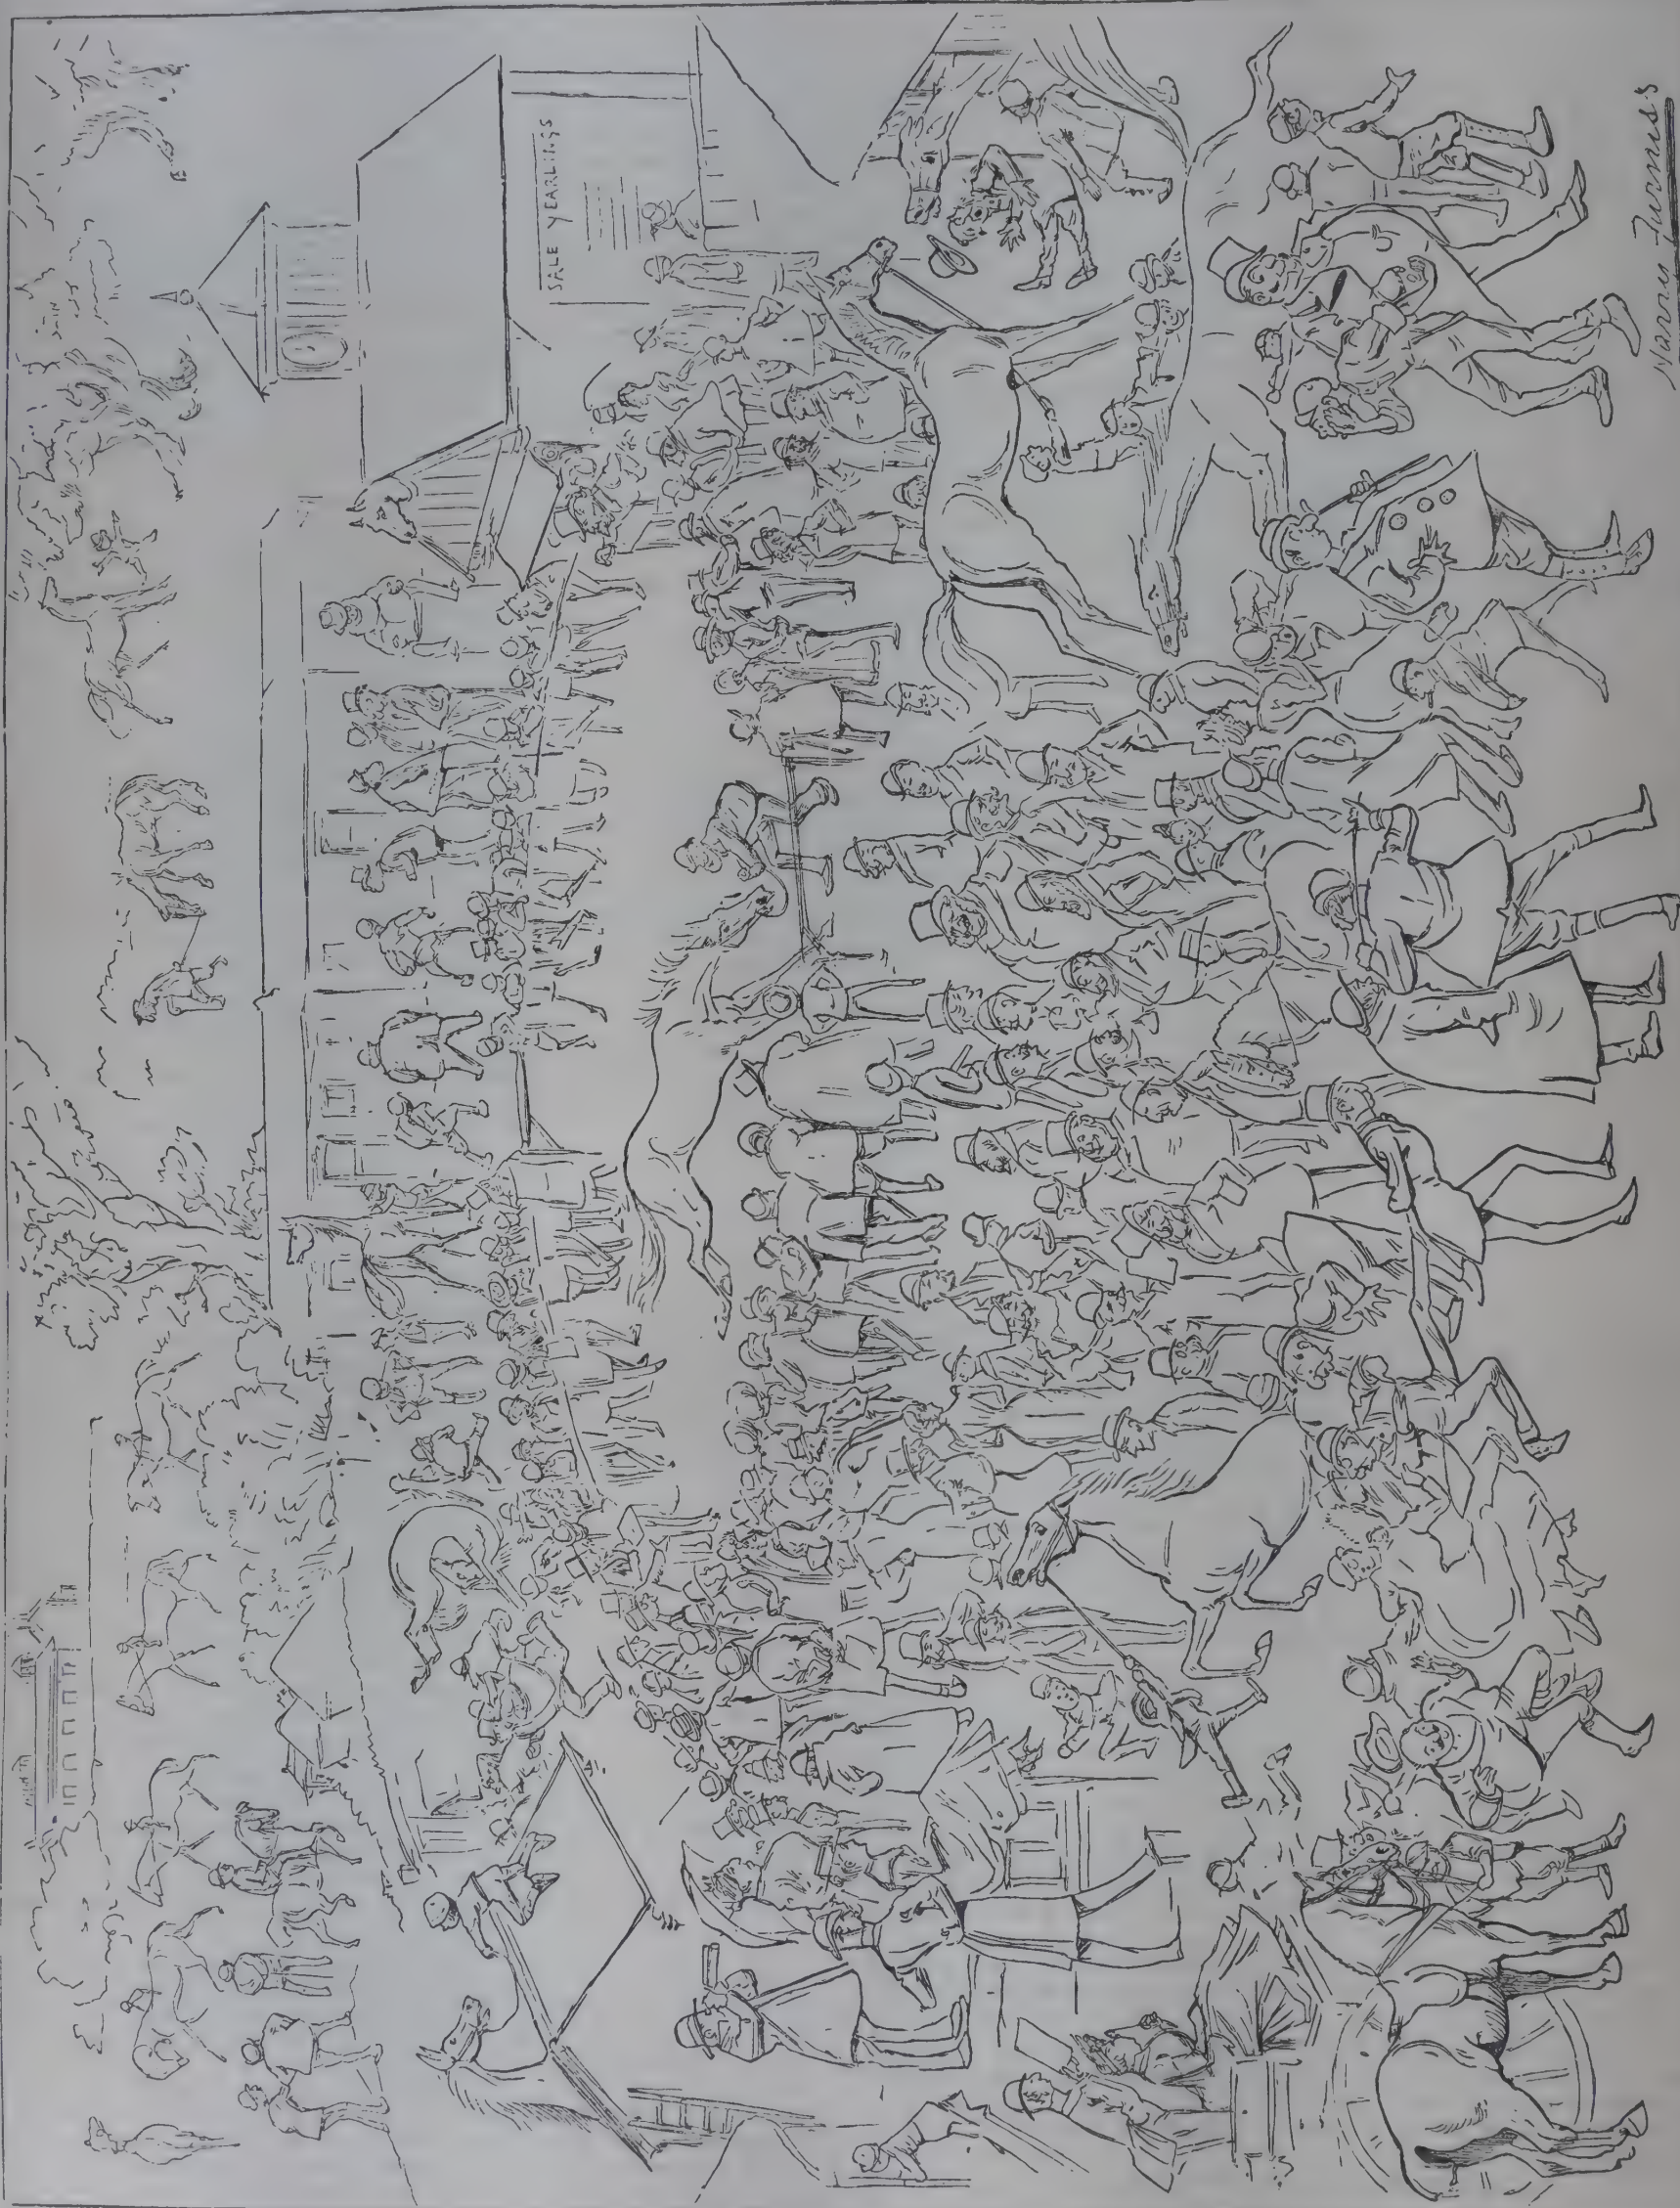 SALE YEARLINGS
Harry Furniss